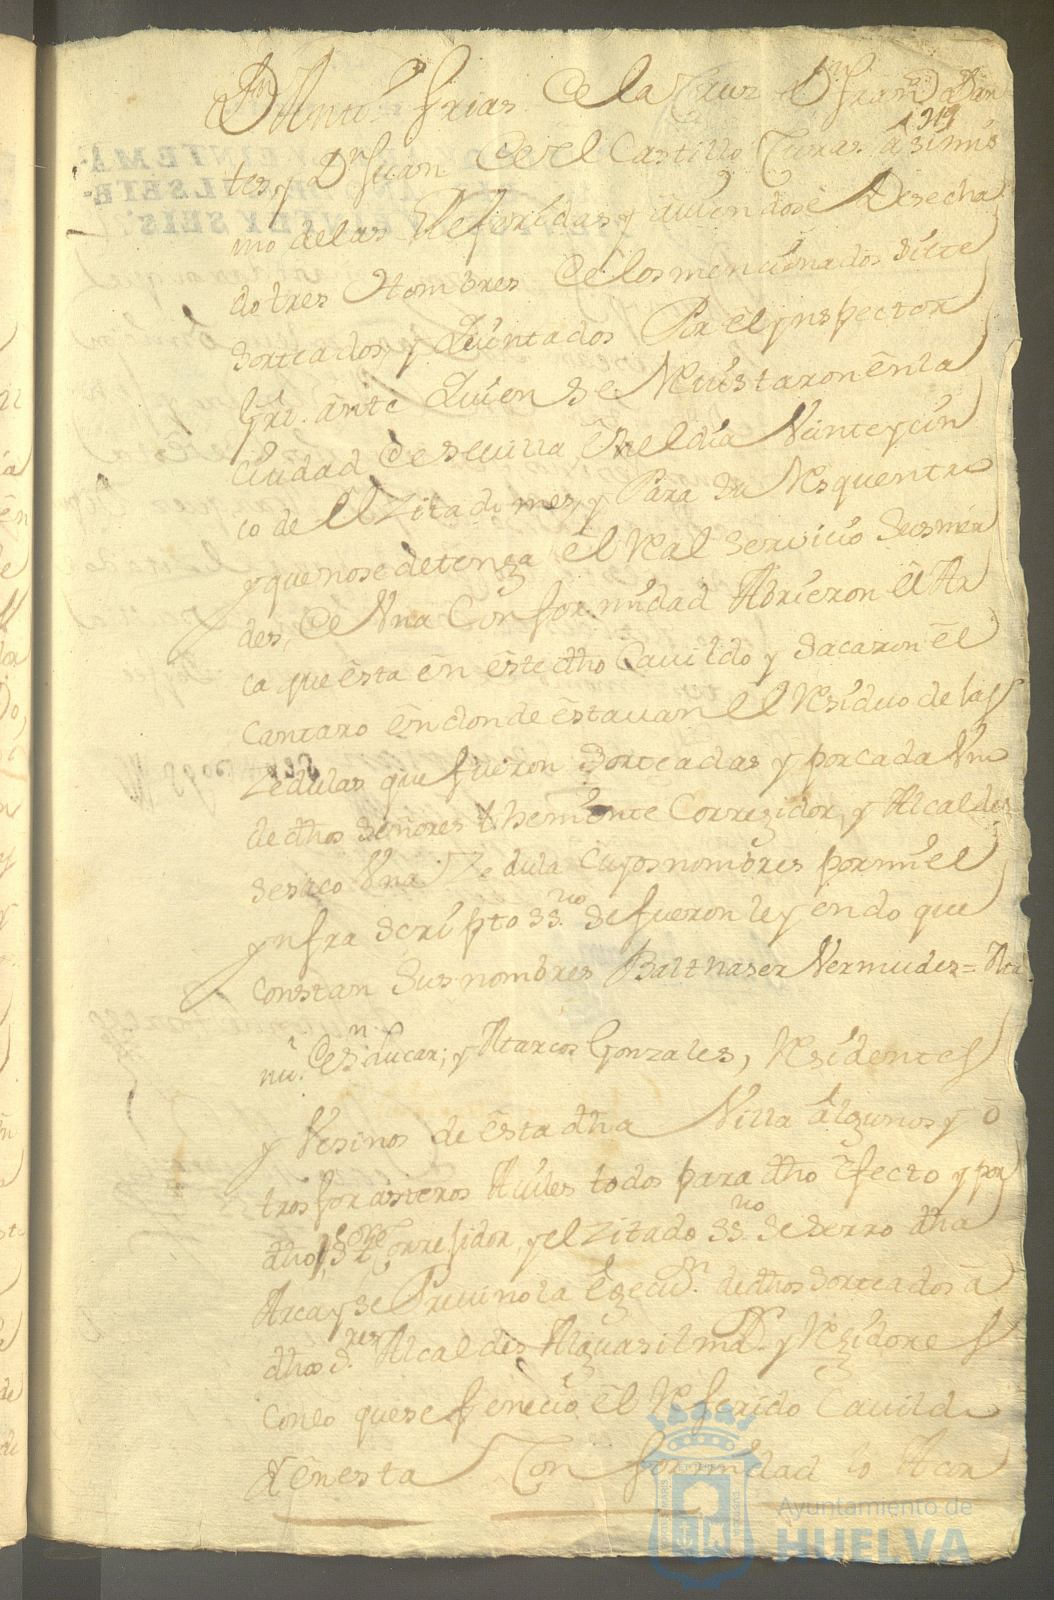 Dn Antto. Frias de la Cruz Dn Franco. Dan
1919
tes, y Dn Juan de el Castillo Curas asimis
mo de las Referidas y aviendose Desecha
do tres Hombres de los mencionados siete
sorteados, y Quintados Por el ynspector
Grl. ante Quien se Revistaron en la
ciudad de Sevilla en el dia Vinte y sin
co de el Zitado mes, y Para su
y que no se detenga el Real servicio Sus mer
des, de Una Conformidad Abrieron el Ar
ca que esta en este dho Cavildo y sacaron el
cantaro en donde estavan el Residuo de las
Zedulas que fueron Sorteadas y por cada Uno
de dhos señores theniente Corregidor, y Alcaldes
se saco Una Zedula Cuyos nombres por mi el
ynfra scripto ss.no se fueron leyendo que
constan Sus nombres Balthaser Vermudes =
de Sn Lucar; y Marcos Gonzales, Residentes
y Vesinos de esta dha Villa algunos y o
tros forasteros Aviles todos para dho efecto y por
dho Sr. the Corregidor, y el Zitado ss.no se serro dha
Arca y se Previno la de dhos Sorteados a
dhos S.res Alcaldes Alguasil mar. y Regidores
con lo que se fenecio el Referido Cavildo
y en esta Conformidad lo Acor
Ayuntamiento de
HUELVA